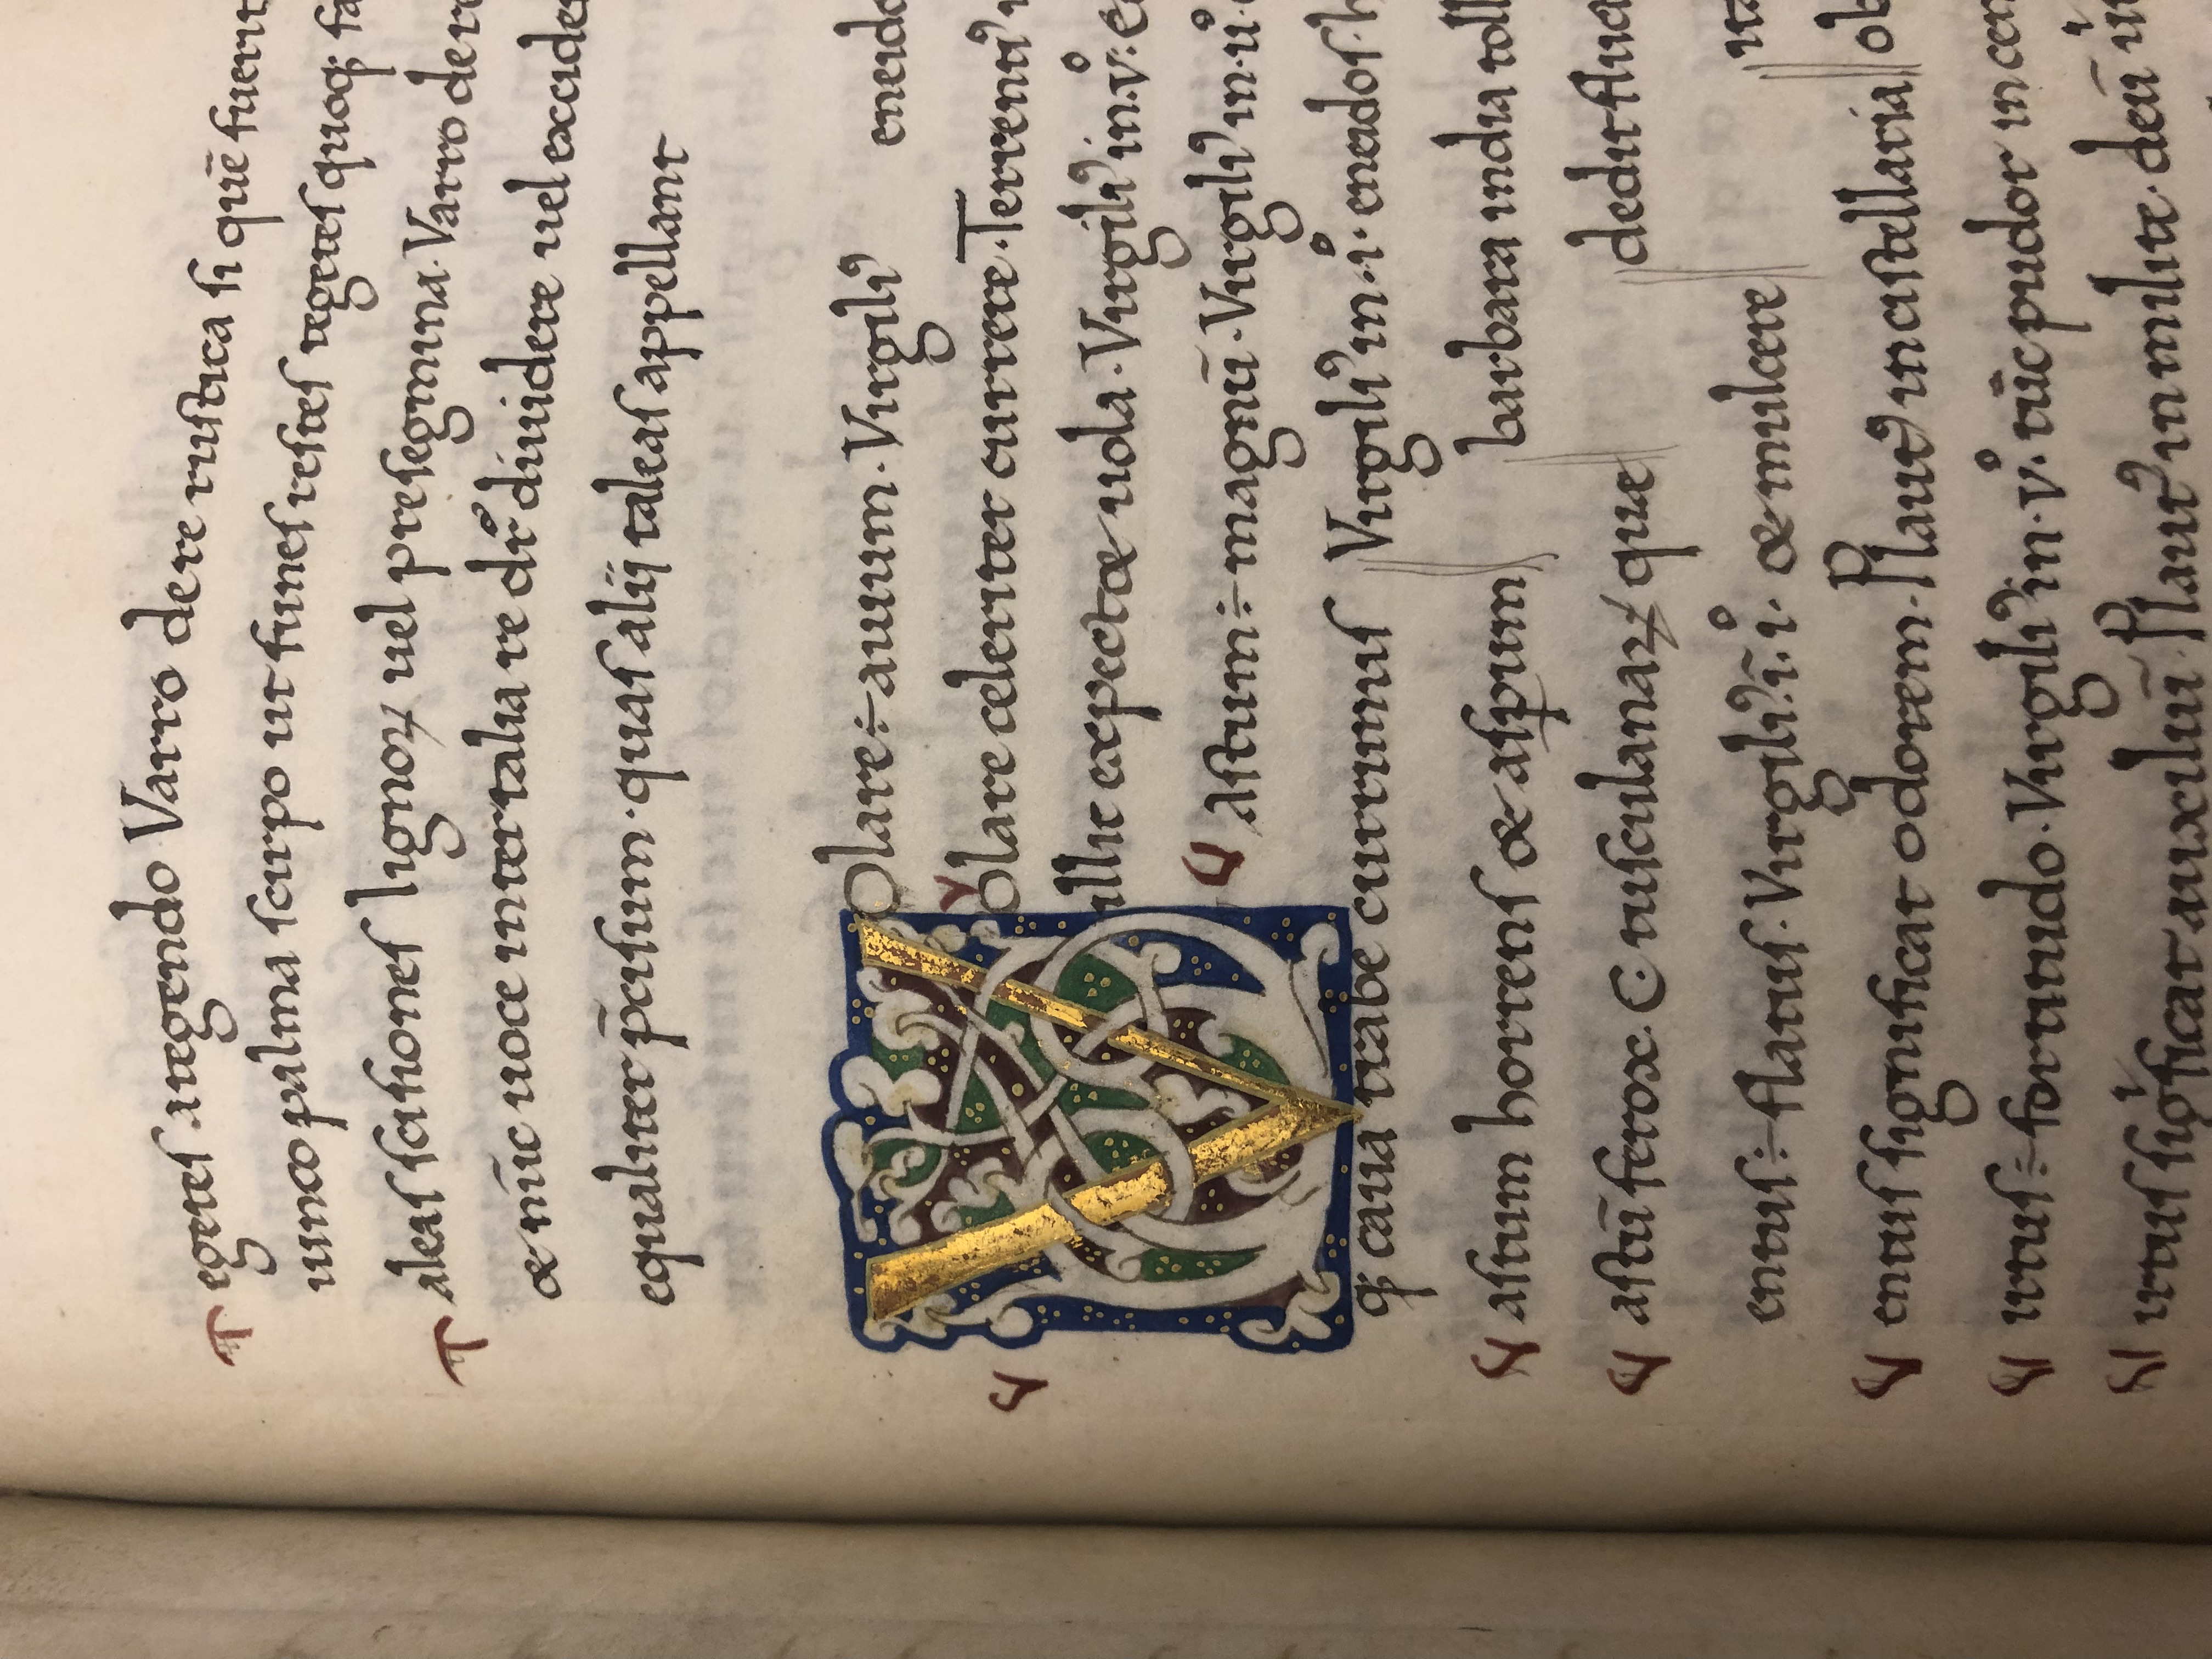 Tegetes a tegendo Varro de re rustica si quē fuerit
iunco palma scirpo ut funes restes tegetes quoqꝫ fa
Taleas scisiones lignoꝝ uel presegmina. Varro de re
& nūc uoce inter talia re dr̄ diuidere uel excider
equaliter pcisum. quas alij taleas appellant
Olare ÷ auium. Virgili⁹ eneido
Volare celeriter currere. Terrenti⁹
illic expectæ uola. Virgili⁹ in .v. e
Vastum ÷ magnū. Virgili⁹ in
qꝫ caua trabe currimus Virgili⁹ in .i. eneidos h
Vastum horrens & asꝑum barbara india toll
Vastū ferox. C. tusculanaꝝ que dedit fluc
entus ÷ flatus. Virgili⁹ ī .i. & mulcere
Ventus significat odorem. Plaut⁹ in cistellaria ob
Virtus ÷ fortitudo. Virgili⁹ in .v. tūc pudor incen
Virtus sigficat auxiliū. Plaut⁹ in milite. deū